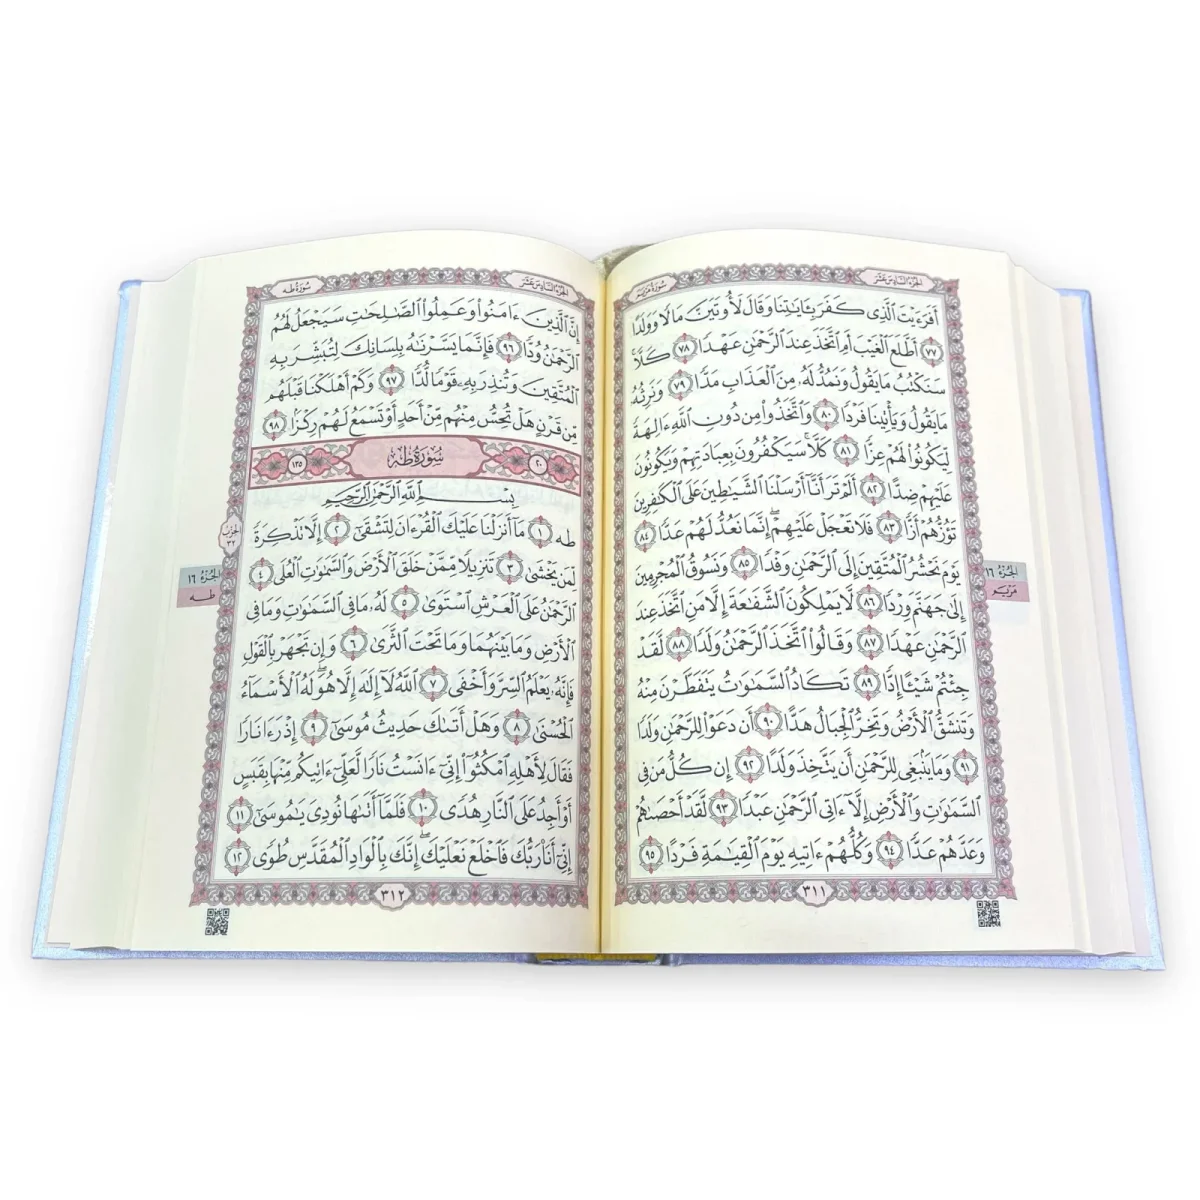 سُورَةُ مَرْيَم
الجُزْءُ السَّادِسَ عَشَرَ
أَفَرَءَيْتَ ٱلَّذِى كَفَرَ بِـَٔايَٰتِنَا وَقَالَ لَأُوتَيَنَّ مَالًا وَوَلَدًا
٧٧ أَطَّلَعَ ٱلْغَيْبَ أَمِ ٱتَّخَذَ عِندَ ٱلرَّحْمَٰنِ عَهْدًا ٧٨ كَلَّا
سَنَكْتُبُ مَا يَقُولُ وَنَمُدُّ لَهُۥ مِنَ ٱلْعَذَابِ مَدًّا ٧٩ وَنَرِثُهُۥ
مَا يَقُولُ وَيَأْتِينَا فَرْدًا ٨٠ وَٱتَّخَذُوا۟ مِن دُونِ ٱللَّهِ ءَالِهَةً
لِّيَكُونُوا۟ لَهُمْ عِزًّا ٨١ كَلَّا ۚ سَيَكْفُرُونَ بِعِبَادَتِهِمْ وَيَكُونُونَ
عَلَيْهِمْ ضِدًّا ٨٢ أَلَمْ تَرَ أَنَّآ أَرْسَلْنَا ٱلشَّيَٰطِينَ عَلَى ٱلْكَٰفِرِينَ
تَؤُزُّهُمْ أَزًّا ٨٣ فَلَا تَعْجَلْ عَلَيْهِمْ ۖ إِنَّمَا نَعُدُّ لَهُمْ عَدًّا ٨٤
يَوْمَ نَحْشُرُ ٱلْمُتَّقِينَ إِلَى ٱلرَّحْمَٰنِ وَفْدًا ٨٥ وَنَسُوقُ ٱلْمُجْرِمِينَ
إِلَىٰ جَهَنَّمَ وِرْدًا ٨٦ لَّا يَمْلِكُونَ ٱلشَّفَٰعَةَ إِلَّا مَنِ ٱتَّخَذَ عِندَ
ٱلرَّحْمَٰنِ عَهْدًا ٨٧ وَقَالُوا۟ ٱتَّخَذَ ٱلرَّحْمَٰنُ وَلَدًا ٨٨ لَّقَدْ
جِئْتُمْ شَيْـًٔا إِدًّا ٨٩ تَكَادُ ٱلسَّمَٰوَٰتُ يَتَفَطَّرْنَ مِنْهُ
وَتَنشَقُّ ٱلْأَرْضُ وَتَخِرُّ ٱلْجِبَالُ هَدًّا ٩٠ أَن دَعَوْا۟ لِلرَّحْمَٰنِ وَلَدًا
٩١ وَمَا يَنۢبَغِى لِلرَّحْمَٰنِ أَن يَتَّخِذَ وَلَدًا ٩٢ إِن كُلُّ مَن فِى
ٱلسَّمَٰوَٰتِ وَٱلْأَرْضِ إِلَّآ ءَاتِى ٱلرَّحْمَٰنِ عَبْدًا ٩٣ لَّقَدْ أَحْصَىٰهُمْ
وَعَدَّهُمْ عَدًّا ٩٤ وَكُلُّهُمْ ءَاتِيهِ يَوْمَ ٱلْقِيَٰمَةِ فَرْدًا ٩٥
الجُزْءُ ١٦
مَرْيَم
٣١١
الجُزْءُ السَّادِسَ عَشَرَ
سُورَةُ طه
إِنَّ ٱلَّذِينَ ءَامَنُوا۟ وَعَمِلُوا۟ ٱلصَّٰلِحَٰتِ سَيَجْعَلُ لَهُمُ
ٱلرَّحْمَٰنُ وُدًّا ٩٦ فَإِنَّمَا يَسَّرْنَٰهُ بِلِسَانِكَ لِتُبَشِّرَ بِهِ
ٱلْمُتَّقِينَ وَتُنذِرَ بِهِۦ قَوْمًا لُّدًّا ٩٧ وَكَمْ أَهْلَكْنَا قَبْلَهُم
مِّن قَرْنٍ هَلْ تُحِسُّ مِنْهُم مِّنْ أَحَدٍ أَوْ تَسْمَعُ لَهُمْ رِكْزًۢا ٩٨
٢٠ سُورَةُ طه ١٣٥
بِسْمِ ٱللَّهِ ٱلرَّحْمَٰنِ ٱلرَّحِيمِ
طه ١ مَآ أَنزَلْنَا عَلَيْكَ ٱلْقُرْءَانَ لِتَشْقَىٰٓ ٢ إِلَّا تَذْكِرَةً
لِّمَن يَخْشَىٰ ٣ تَنزِيلًا مِّمَّنْ خَلَقَ ٱلْأَرْضَ وَٱلسَّمَٰوَٰتِ ٱلْعُلَى ٤
ٱلرَّحْمَٰنُ عَلَى ٱلْعَرْشِ ٱسْتَوَىٰ ٥ لَهُۥ مَا فِى ٱلسَّمَٰوَٰتِ وَمَا فِى
ٱلْأَرْضِ وَمَا بَيْنَهُمَا وَمَا تَحْتَ ٱلثَّرَىٰ ٦ وَإِن تَجْهَرْ بِٱلْقَوْلِ
فَإِنَّهُۥ يَعْلَمُ ٱلسِّرَّ وَأَخْفَى ٧ ٱللَّهُ لَآ إِلَٰهَ إِلَّا هُوَ ۖ لَهُ ٱلْأَسْمَآءُ
ٱلْحُسْنَىٰ ٨ وَهَلْ أَتَىٰكَ حَدِيثُ مُوسَىٰٓ ٩ إِذْ رَءَا نَارًا
فَقَالَ لِأَهْلِهِ ٱمْكُثُوٓا۟ إِنِّىٓ ءَانَسْتُ نَارًا لَّعَلِّىٓ ءَاتِيكُم مِّنْهَا بِقَبَسٍ
أَوْ أَجِدُ عَلَى ٱلنَّارِ هُدًى ١٠ فَلَمَّآ أَتَىٰهَا نُودِىَ يَٰمُوسَىٰٓ ١١
إِنِّىٓ أَنَا۠ رَبُّكَ فَٱخْلَعْ نَعْلَيْكَ ۖ إِنَّكَ بِٱلْوَادِ ٱلْمُقَدَّسِ طُوًى ١٢
الحِزْب
٣٢
الجُزْءُ ١٦
طه
٣١٢